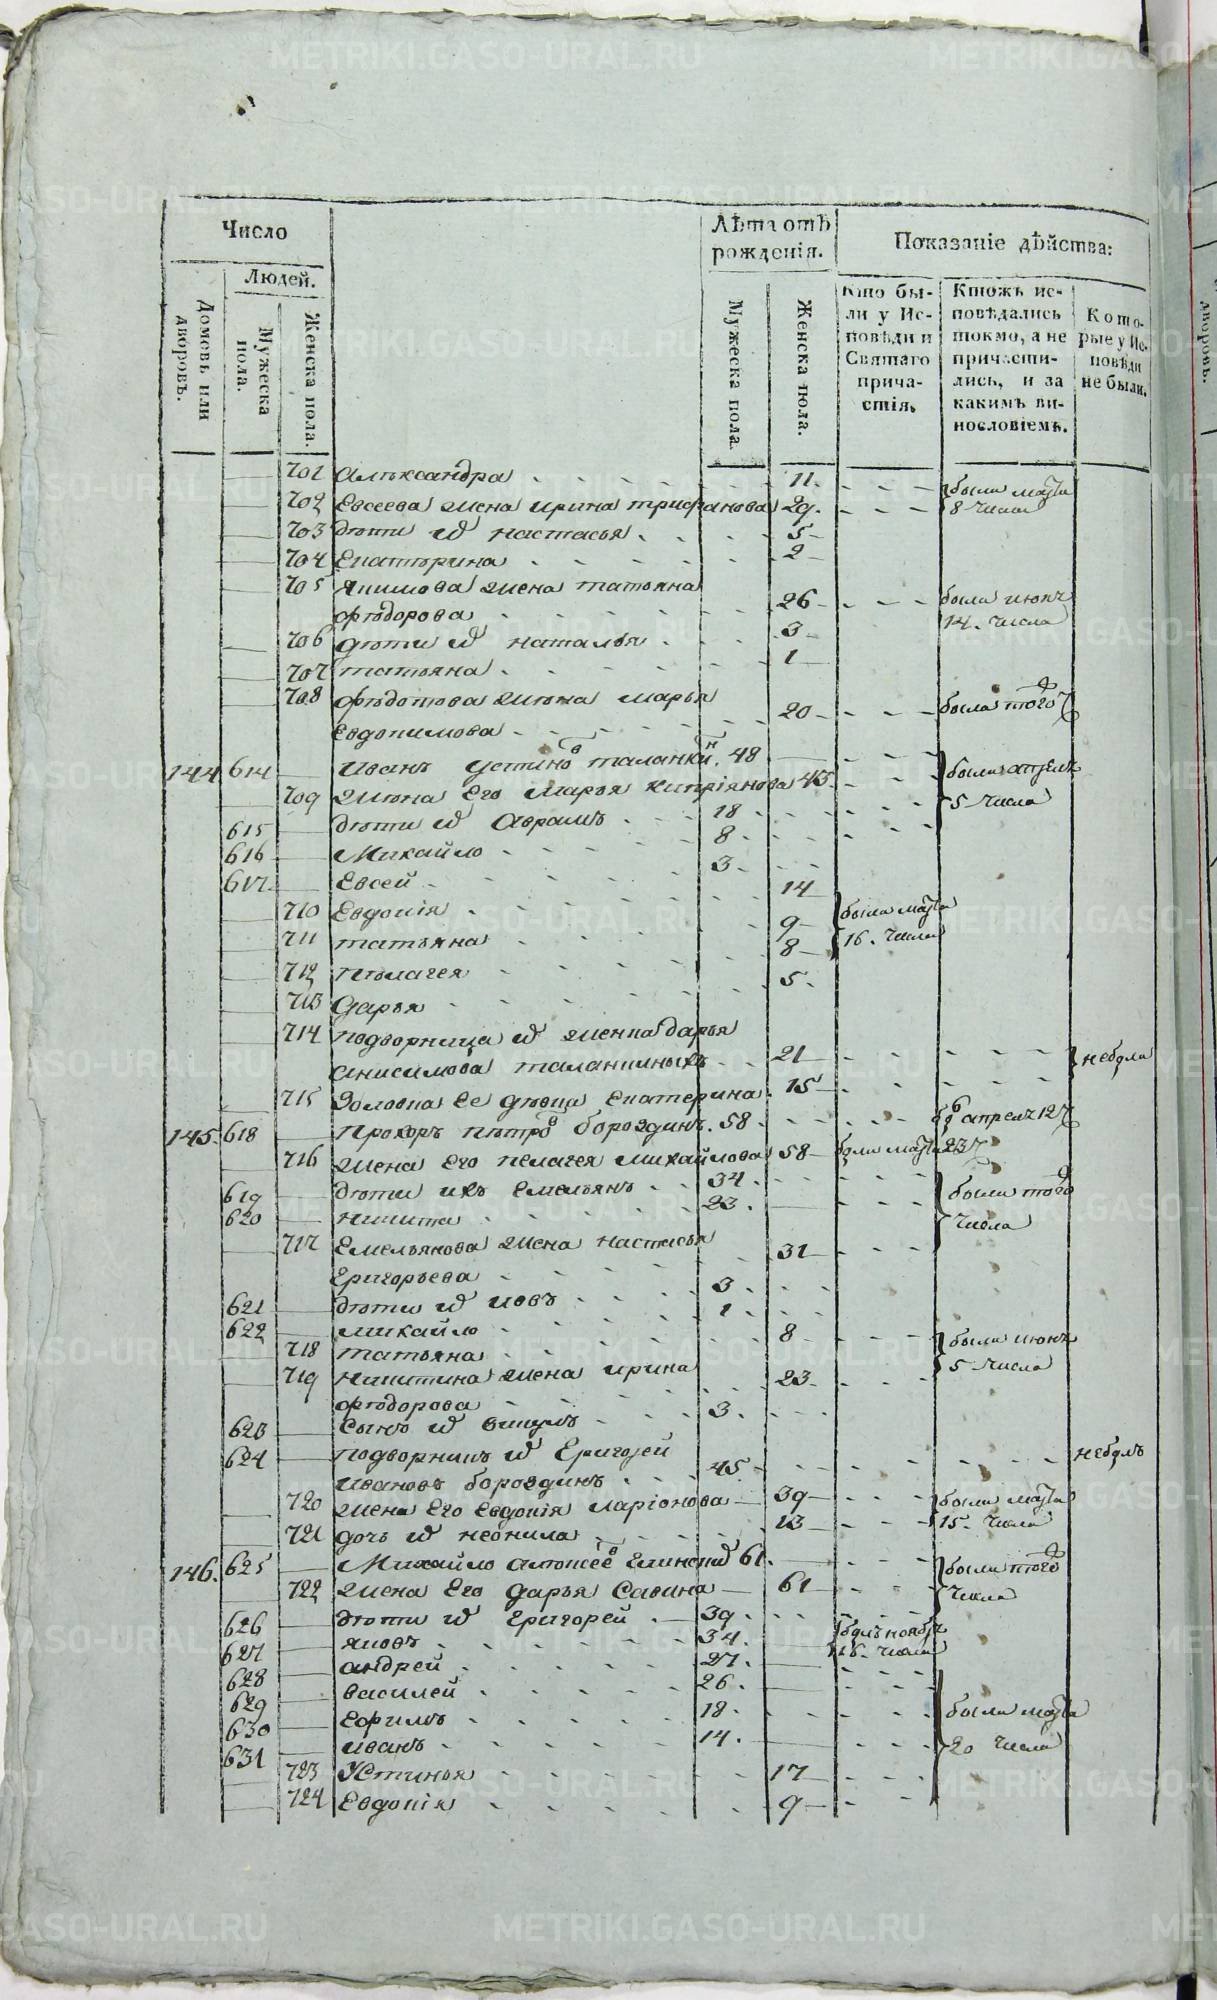 METRIKI.GASO-URAL.RU
Число
Лѣта отъ рожденія.
Показаніе дѣйства:
Людей.
Домовъ или дворовъ.
Мужеска пола.
Женска пола.
Мужеска пола.
Женска пола.
Кто бы-
ли у Ис-
повѣди и
Святаго
прича-
стія.
Ктожъ ис-
повѣдались
токмо, а не
причасти-
лись, и за
какимъ ви-
нословіемъ.
Кото-
рые у Ис-
повѣди
не были.
701 Александра 11
702 Евсеева жена ирина трифанова 29 были 8 числа
703 дѣти ей настасья 5
704 Екатерина 2
705 Якимова жена татьяна
фѣдорова 26 была июня 14 числа
706 дѣти ей наталья 3
707 татьяна 1
708 фѣдотова жена марья
Евдокимова 20 была того
144 614 иванъ устиновъ таланкинъ 48 были апреля
709 жена Его Марья киприянова 43 5 числа
615 дѣти ей Аврамъ 18
616 Михайло 8
617 Евсей 3
710 Евдокія 14 были
711 татьяна 9 16 числа
712 пѣлагея 8
713 дарья 5
714 подворница ей женка дарья
анисимова таланкиныхъ 21 небыли
715 Золовка Ее дѣвица Екатерина 15
145 618 Прохоръ пѣтровъ бороздинъ 58 апреля 12
716 жена Его пелагея михайлова 58 23
619 дѣти ихъ Емельянъ 34 были того
620 никита 23 числа
717 Емельянова жена настасья
Григорьева 31
621 дѣти ей иовъ 3
622 михайло 1
718 татьяна 8 были июня
719 никитина жена ирина 5 числа
фѣдорова 23
623 сынъ ей 3
624 подворникъ ей Григорей
ивановъ бороздинъ 45 небылъ
720 жена Его Евдокія ларіонова 39 были
721 дочь ей неонила 13 15 числа
146 625 Михайло алексеевъ Глинскій 61 были того
722 жена Его дарья Савина 61 числа
626 дѣти ей Григорей 39
627 яковъ 34 былъ ноября 16 числа
628 андрей 27
629 василей 26
630 Ефимъ 18 были
631 иванъ 14 20 числа
723 Устинья 17
724 Евдокія 9
дворовъ.